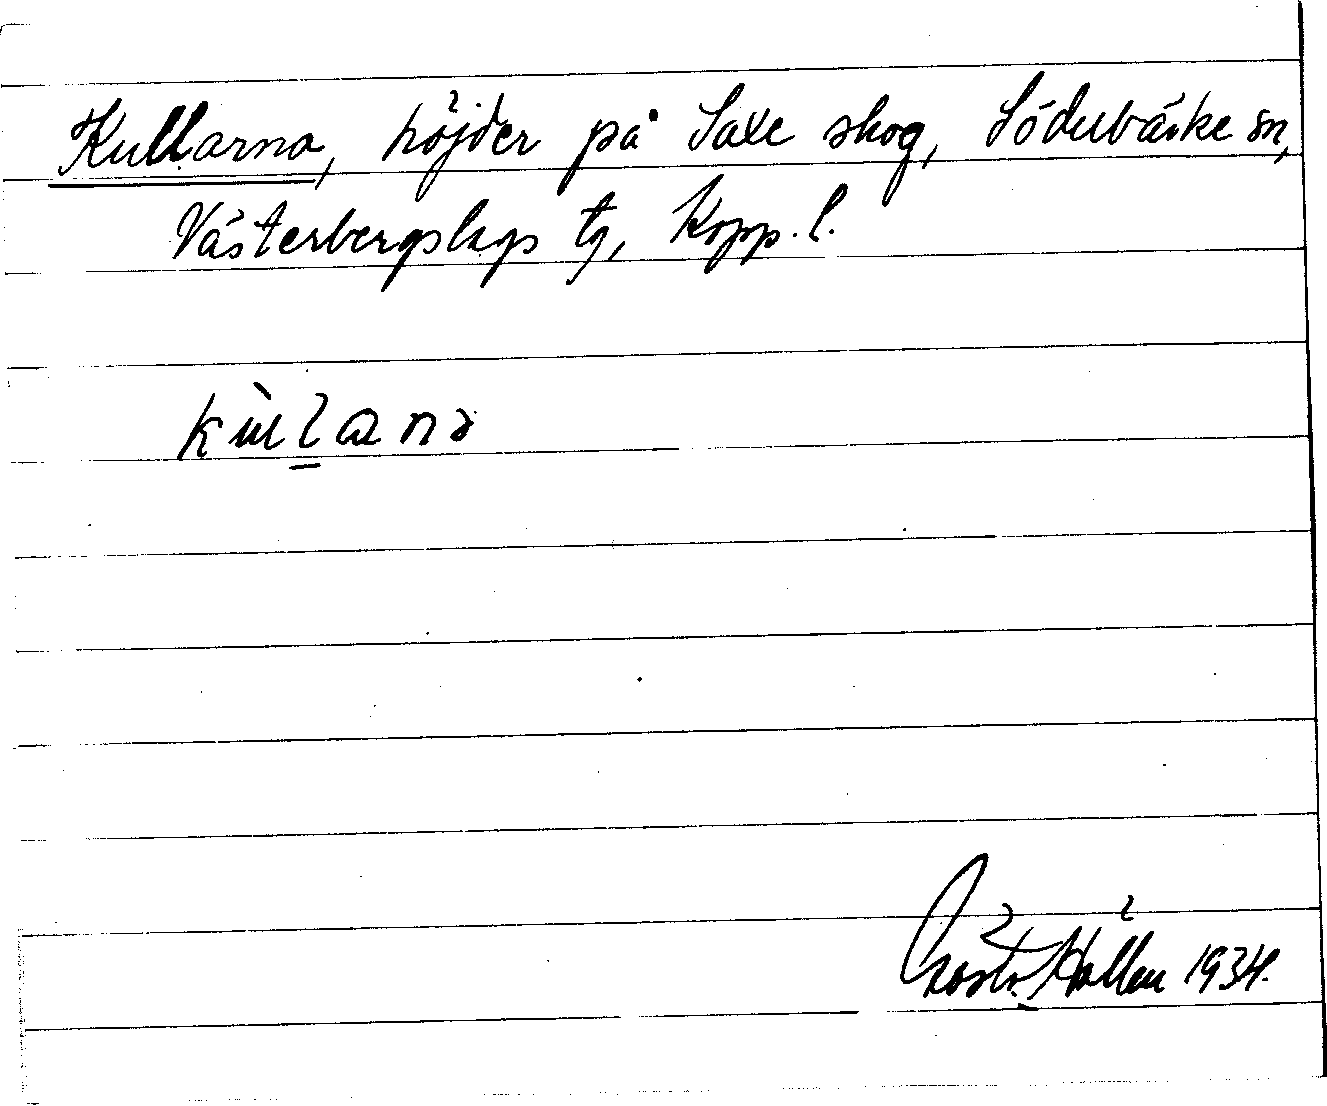 Kullarna, höjder på Saxe skog, Söderbärke sn,
Västerbergslags tg, Kopp. l.
kùl̠ana
Gösta Hallen 1934.